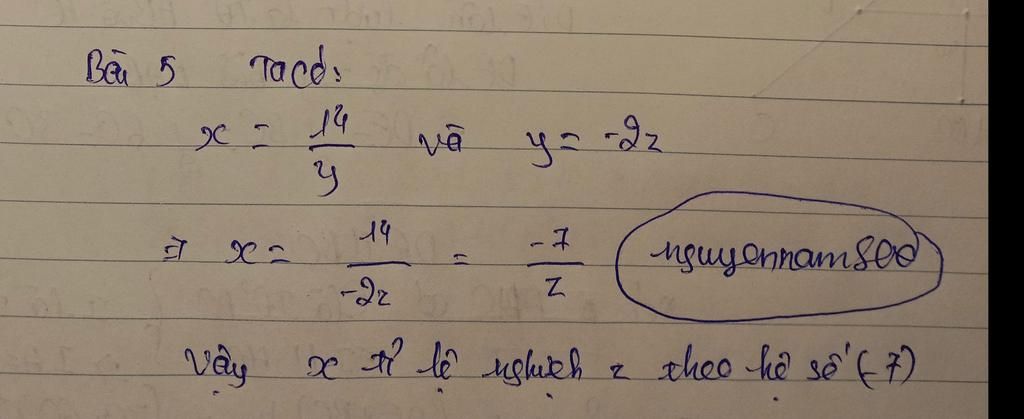 Bài 5 Ta có:
x = 14/y và y = -2z
⇒ x = 14/-2z = -7/z nguyennam
Vậy x tỉ lệ nghịch z theo hệ số (-7)